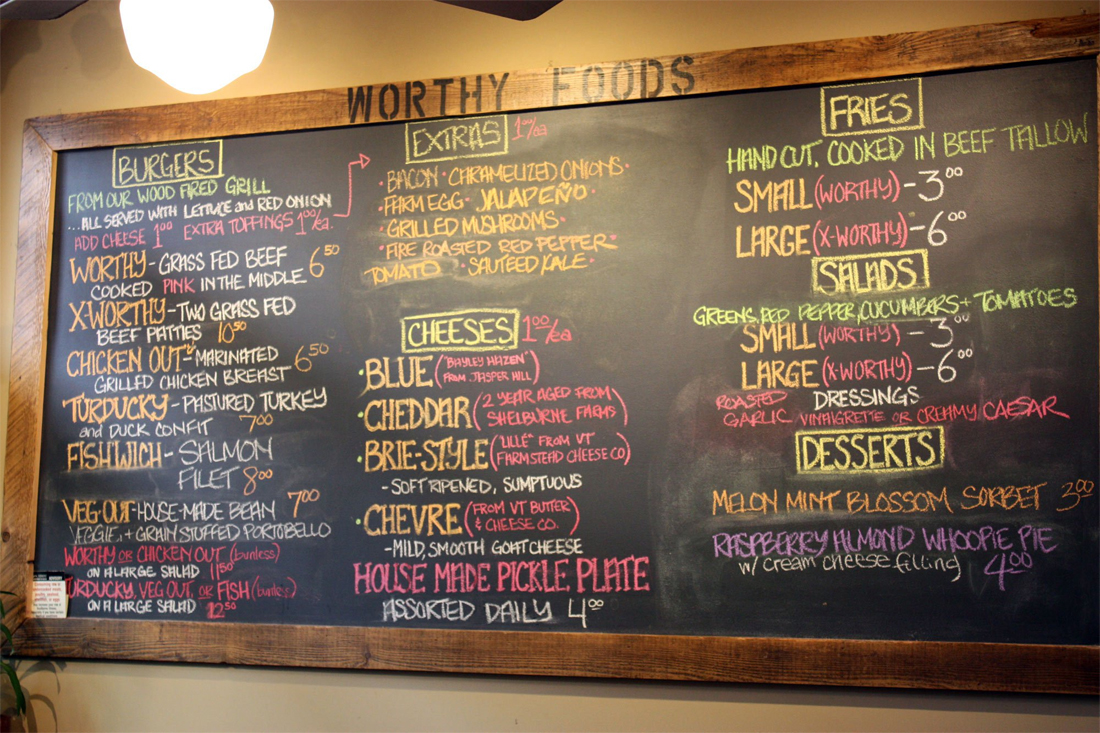 WORTHY FOODS
BURGERS
FROM OUR WOOD FIRED GRILL
...ALL SERVED WITH LETTUCE and RED ONION
ADD CHEESE 1.00 EXTRA TOPPINGS 1.00/ea.
WORTHY - GRASS FED BEEF 6.50
COOKED PINK IN THE MIDDLE
X-WORTHY - TWO GRASS FED
BEEF PATTIES 10.50
CHICKEN OUT - MARINATED 6.50
GRILLED CHICKEN BREAST
TURDUCKY - PASTURED TURKEY
and DUCK CONFIT 7.00
FISHWICH - SALMON
FILET 8.00
VEG-OUT - HOUSE-MADE BEAN 7.00
VEGGIE, + GRAIN STUFFED PORTOBELLO
WORTHY OR CHICKEN OUT (bunless)
ON A LARGE SALAD 11.50
TURDUCKY, VEG OUT, OR FISH (bunless)
ON A LARGE SALAD 12.50
EXTRAS 1.00/ea
· BACON · CARAMELIZED ONIONS ·
· FARM EGG · JALAPEÑO
· GRILLED MUSHROOMS ·
· FIRE ROASTED RED PEPPER ·
TOMATO · SAUTEED KALE ·
CHEESES 1.00/ea
· BLUE ("BAYLEY HAZEN" FROM JASPER HILL)
· CHEDDAR (2 YEAR AGED FROM SHELBURNE FARMS)
· BRIE-STYLE ("LILLÉ" FROM VT FARMSTEAD CHEESE CO)
- SOFT RIPENED, SUMPTUOUS
· CHEVRE (FROM VT BUTTER & CHEESE CO.)
- MILD, SMOOTH GOAT CHEESE
HOUSE MADE PICKLE PLATE
ASSORTED DAILY 4.00
FRIES
HAND CUT, COOKED IN BEEF TALLOW
SMALL (WORTHY) - 3.00
LARGE (X-WORTHY) - 6.00
SALADS
GREENS, RED PEPPER, CUCUMBERS + TOMATOES
SMALL (WORTHY) - 3.00
LARGE (X-WORTHY) - 6.00
DRESSINGS
ROASTED GARLIC VINAIGRETTE OR CREAMY CAESAR
DESSERTS
MELON MINT BLOSSOM SORBET 3.00
RASPBERRY ALMOND WHOOPIE PIE
w/ cream cheese filling 4.00